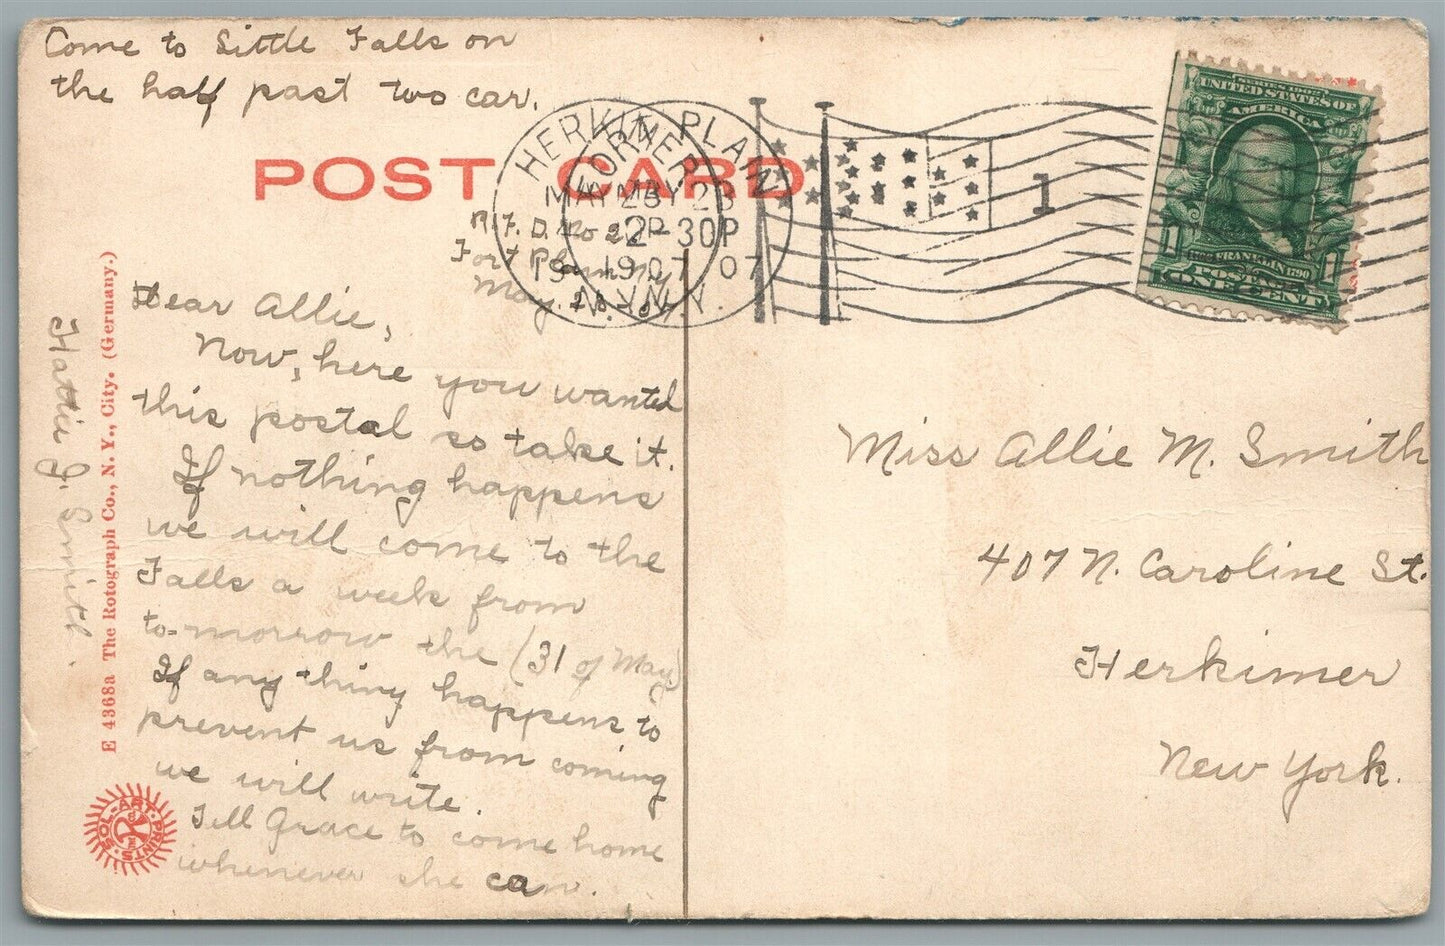 Come to Little Falls on
the half past two car.
POST CARD
HERKIMER
FORT PLAIN
MAY 23
2-30P
1907
N.Y.
1
SERIES 1902
UNITED STATES OF
AMERICA
FRANKLIN 1790
POSTAGE
1 ONE CENT 1
R.F.D. No 2
Fort Plain
May
Dear Allie,
Now, here you wanted
this postal so take it.
If nothing happens
we will come to the
Falls a week from
to-morrow the (31 of May)
If any thing happens to
prevent us from coming
we will write.
Tell Grace to come home
whenever she can.
Hattie J. Smith.
E 4368a The Rotograph Co., N. Y., City. (Germany.)
SOL-ART PRINTS
Miss Allie M. Smith
407 N. Caroline St.
Herkimer
New York.